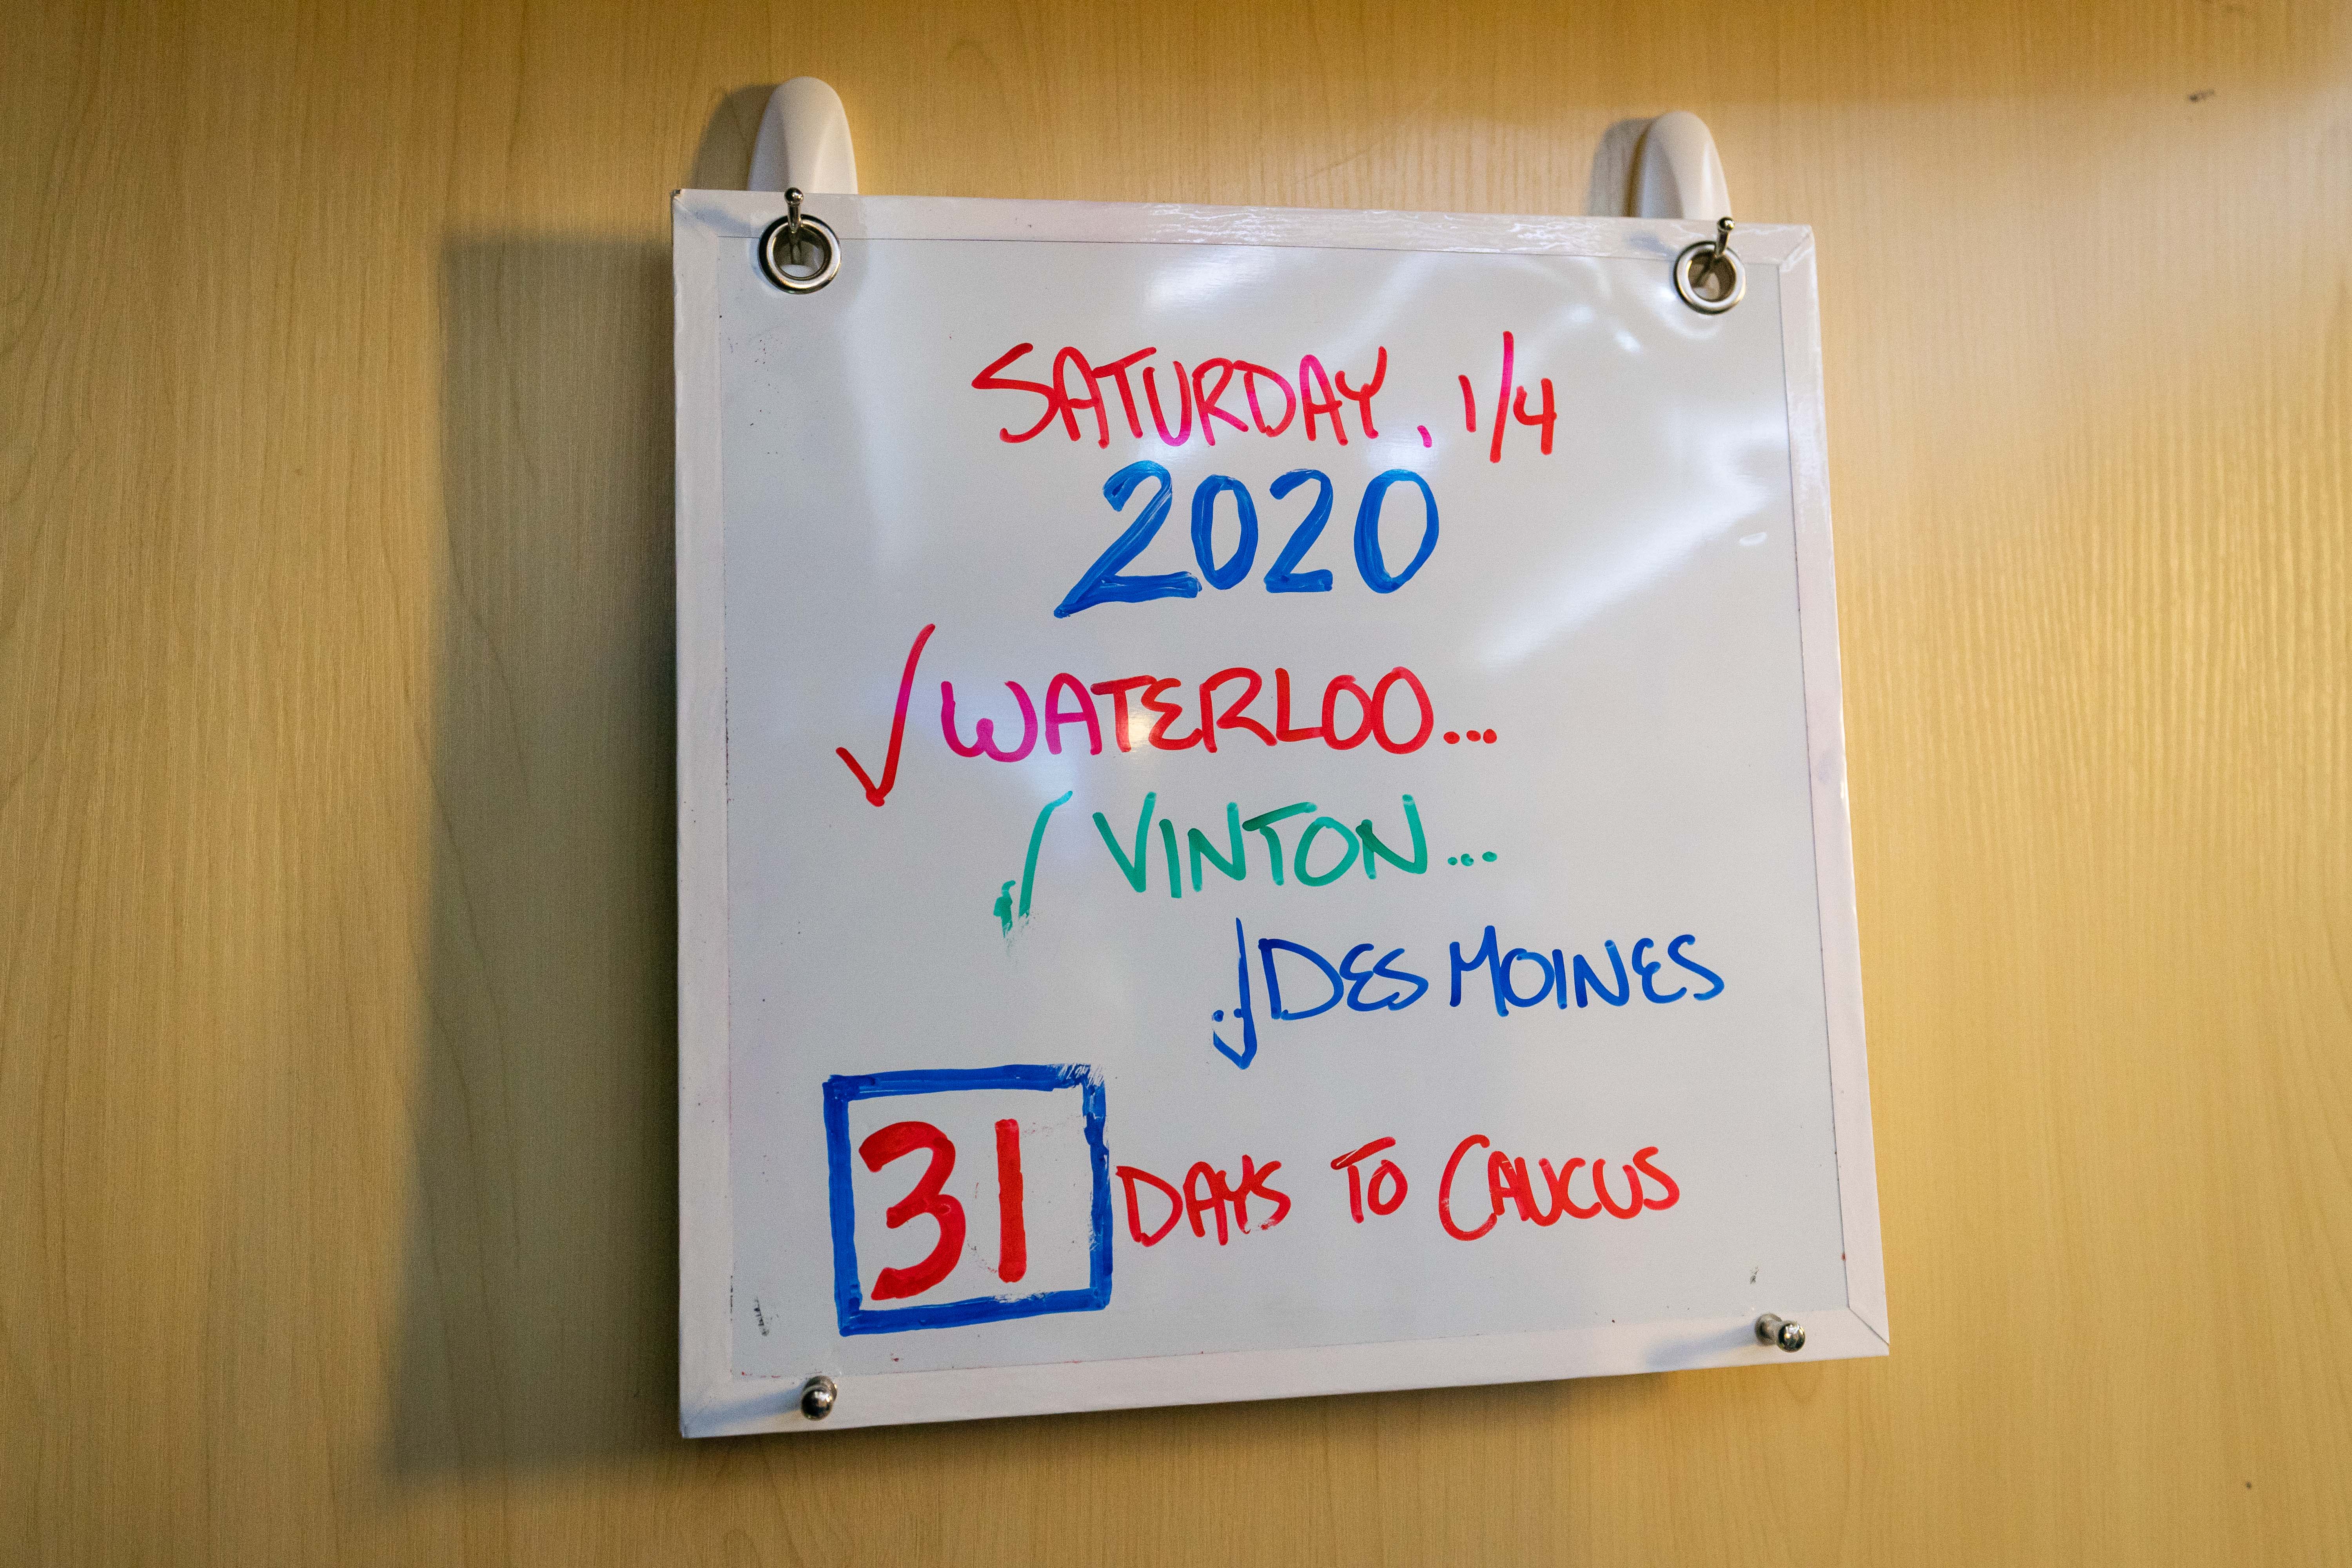 SATURDAY, 1/4
2020
✓ WATERLOO...
✓ VINTON...
✓ DES MOINES
31 DAYS TO CAUCUS